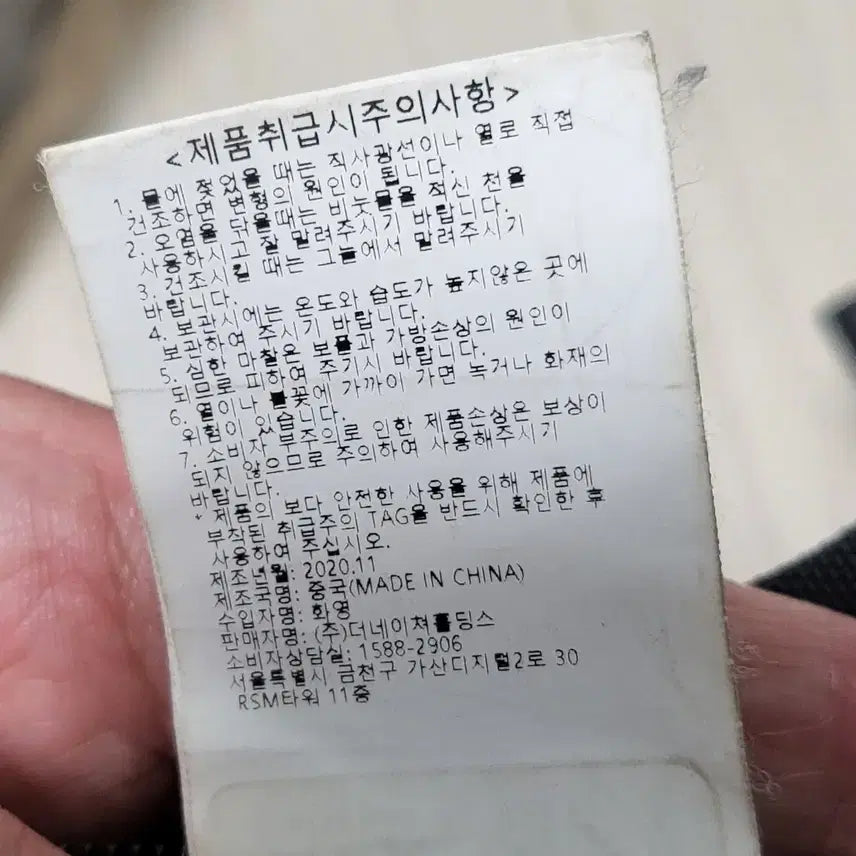 <제품취급시주의사항>
1. 물에 젖었을 때는 직사광선이나 열로 직접
건조하면 변형의 원인이 됩니다.
2. 오염을 닦을때는 비눗물을 적신 천을
사용하시고 잘 말려주시기 바랍니다.
3. 건조시킬 때는 그늘에서 말려주시기
바랍니다.
4. 보관시에는 온도와 습도가 높지않은 곳에
보관하여 주시기 바랍니다.
5. 심한 마찰은 보풀과 가방손상의 원인이
되므로 피하여 주기시 바랍니다.
6. 열이나 불꽃에 가까이 가면 녹거나 화재의
위험이 있습니다.
7. 소비자 부주의로 인한 제품손상은 보상이
되지 않으므로 주의하여 사용해주시기
바랍니다.
* 제품의 보다 안전한 사용을 위해 제품에
부착된 취급주의 TAG을 반드시 확인한 후
사용하여 주십시오.
제조년월: 2020.11
제조국명: 중국(MADE IN CHINA)
수입자명: 화영
판매자명: (주)더네이쳐홀딩스
소비자상담실: 1588-2906
서울특별시 금천구 가산디지털2로 30
RSM타워 11층